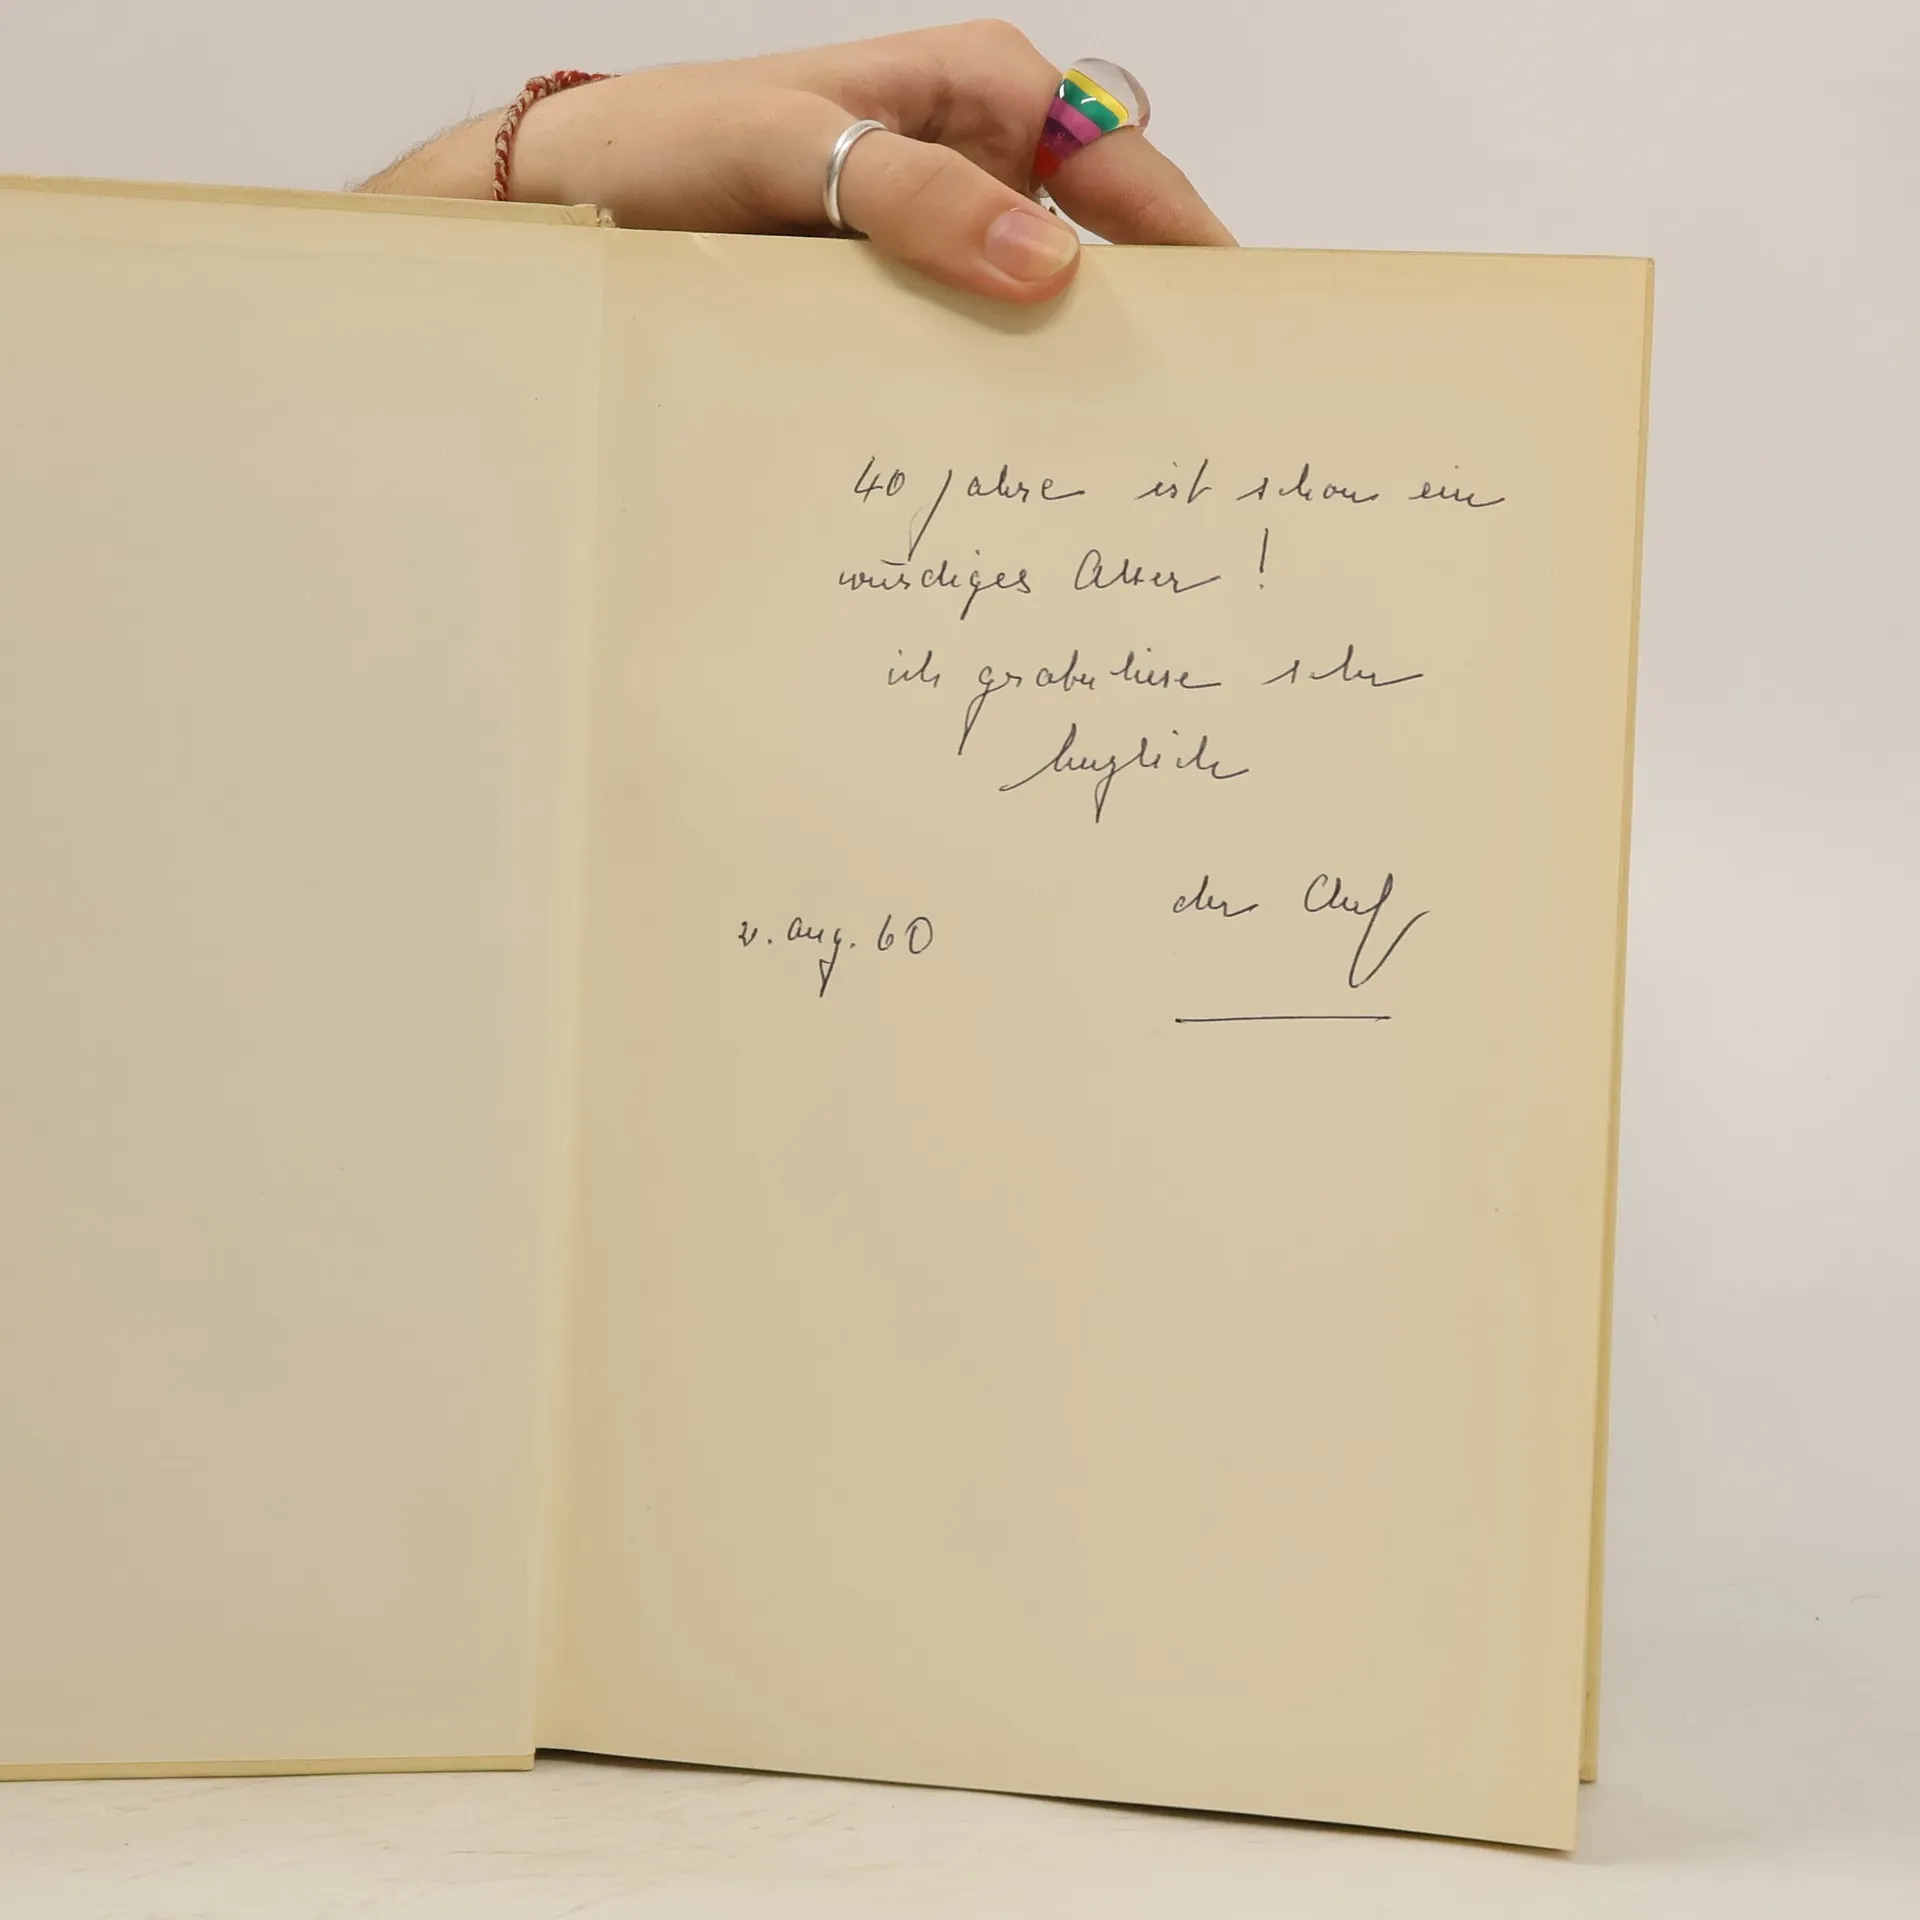 40 Jahre ist schon ein
würdiges Alter !
ich gratuliere sehr
herzlich
der Chef
Aug. 60